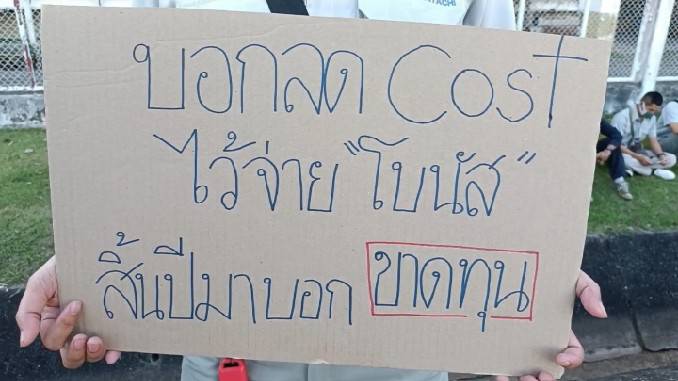 HITACHI
บอกลด Cost
ไว้จ่าย "โบนัส"
สิ้นปีมาบอก ขาดทุน